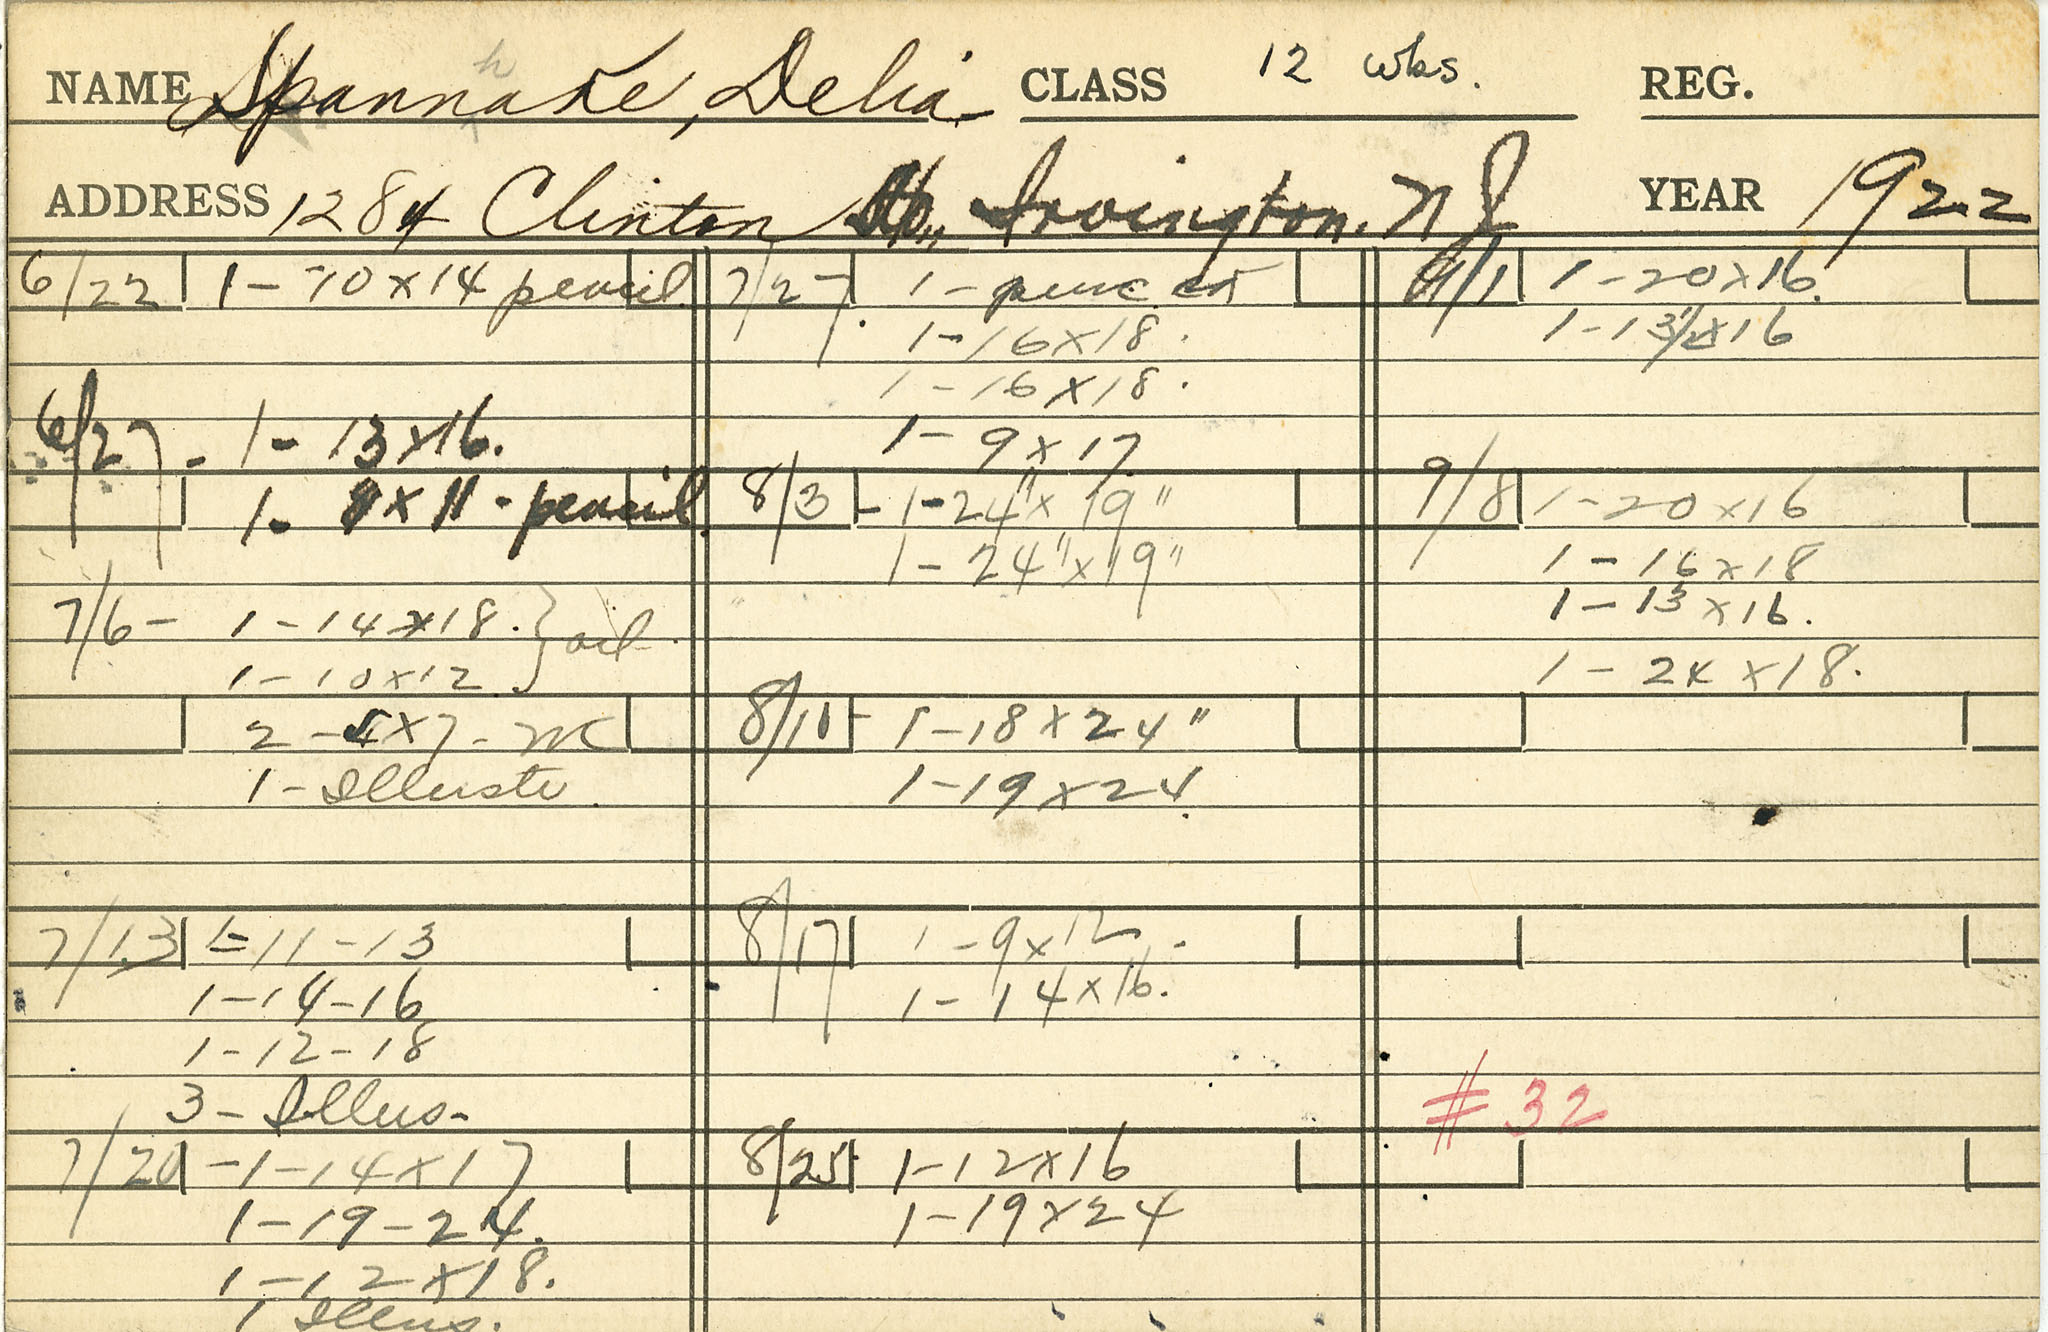 NAME Spannake, Delia CLASS 12 wks. REG.
h
ADDRESS 1284 Clinton Irvington. N J YEAR 1922
6/22 1 - 10 x 14 pencil
6/27 - 1 - 13 x 16.
1 - x 11 - pencil
7/6 - 1 - 14 x 18. } oil
1 - 10 x 12
2 - x 7 - WC
1 - Illustr
7/13 1 = 11 - 13
1 - 14 - 16
1 - 12 - 18
3 - Illus -
7/20 - 1 - 14 x 17
1 - 19 - 24.
1 - 12 x 18.
1 Illus.
7/27 1 -
1 - 16 x 18.
1 - 16 x 18.
1 - 9 x 17
8/3 - 1 - 24" x 19"
1 - 24" x 19"
8/10 - 1 - 18 x 24"
1 - 19 x 24
8/17 1 - 9 x 12 -
1 - 14 x 16.
8/25 1 - 12 x 16
1 - 19 x 24
9/1 1 - 20 x 16.
1 - 13 1/2 x 16
9/8 1 - 20 x 16
1 - 16 x 18
1 - 13 x 16.
1 - 24 x 18.
# 32